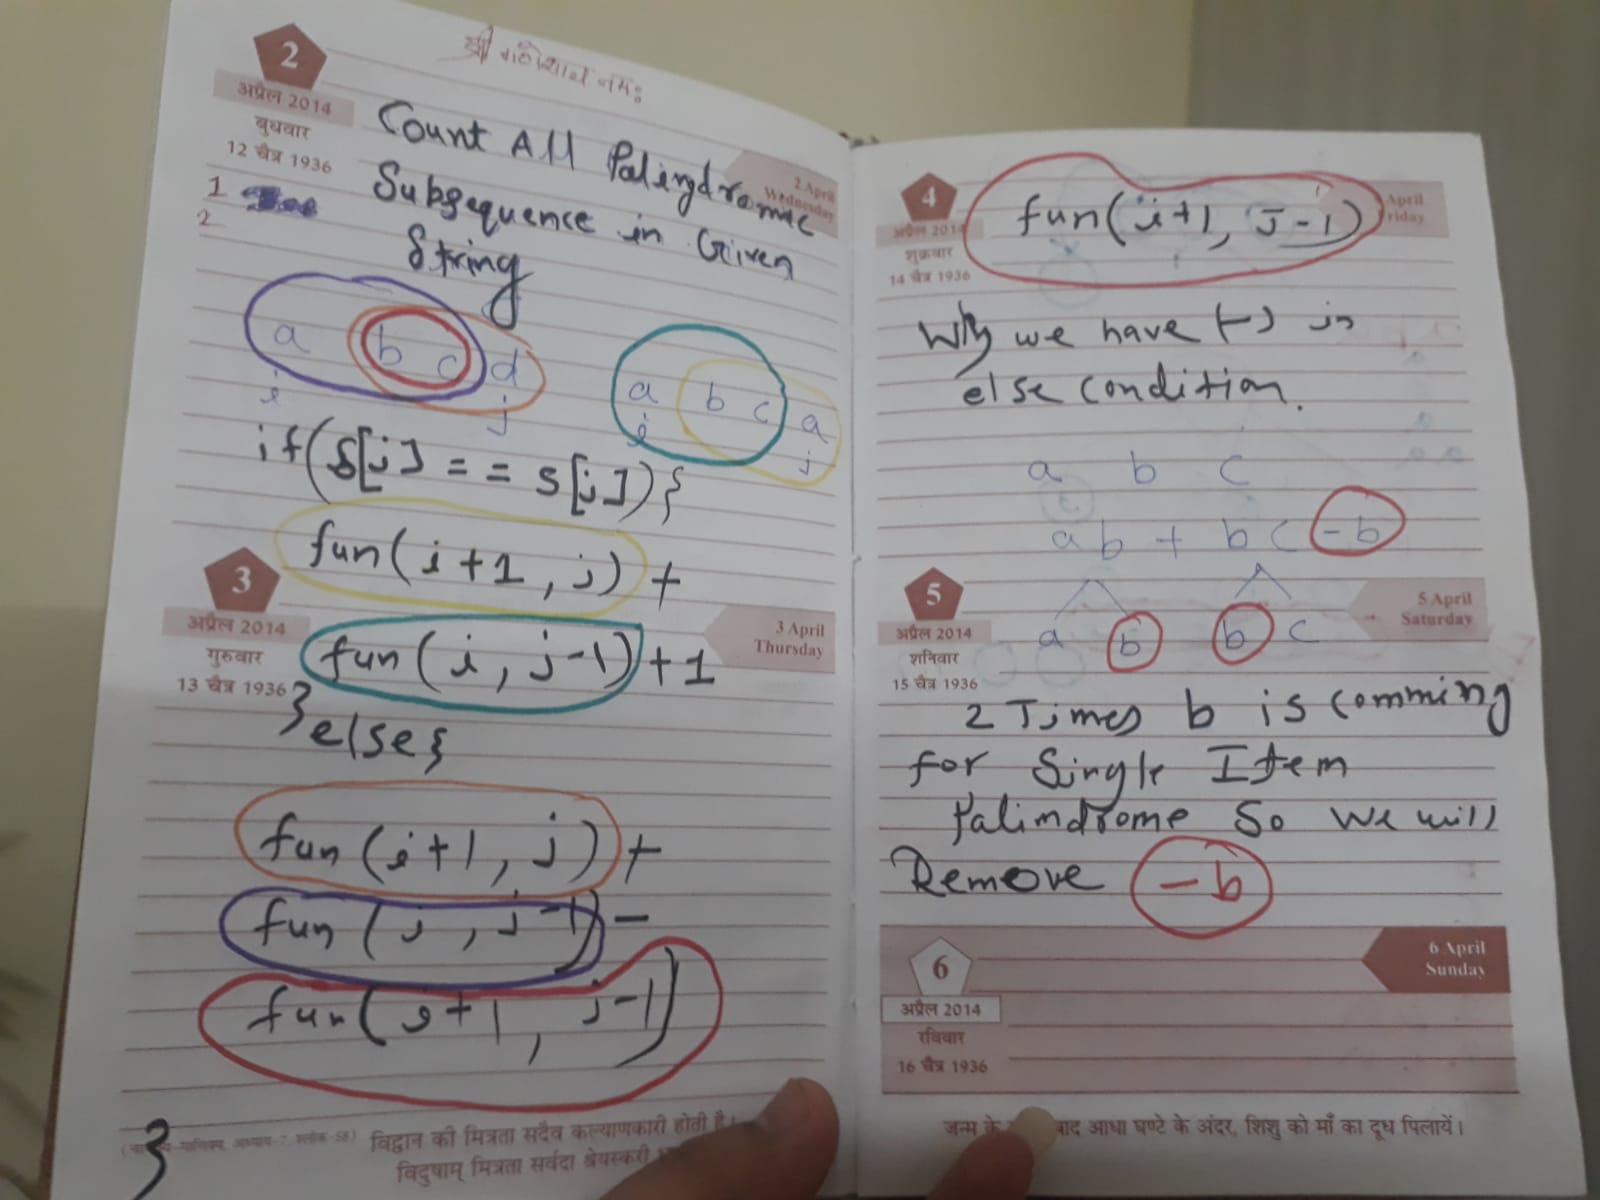 श्री गणेशाय नमः
2
अप्रैल 2014
बुधवार
12 चैत्र 1936
2 April
Wednesday
1
2
Count All Palingdromic
Subsequence in Given
String
a b c d
i j
a b c a
i j
if(S[i] == S[j]){
fun(i+1, j) +
3
अप्रैल 2014
गुरुवार
13 चैत्र 1936
3 April
Thursday
fun(i, j-1)+1
}else{
fun(i+1, j)+
fun(i, j-1)-
fun(i+1, j-1)
}
विद्वान की मित्रता सदैव कल्याणकारी होती है।
विदुषाम् मित्रता सर्वदा श्रेयस्करी
4
अप्रैल 2014
शुक्रवार
14 चैत्र 1936
April
riday
fun(i+1, J-1)
Why we have (-) in
else condition.
a b c
ab + bc -b
5
अप्रैल 2014
शनिवार
15 चैत्र 1936
5 April
Saturday
a b b c
2 Times b is comming
for Single Item
Palimdrome So we will
Remove -b
6
अप्रैल 2014
रविवार
16 चैत्र 1936
6 April
Sunday
जन्म के बाद आधा घण्टे के अंदर, शिशु को माँ का दूध पिलायें।